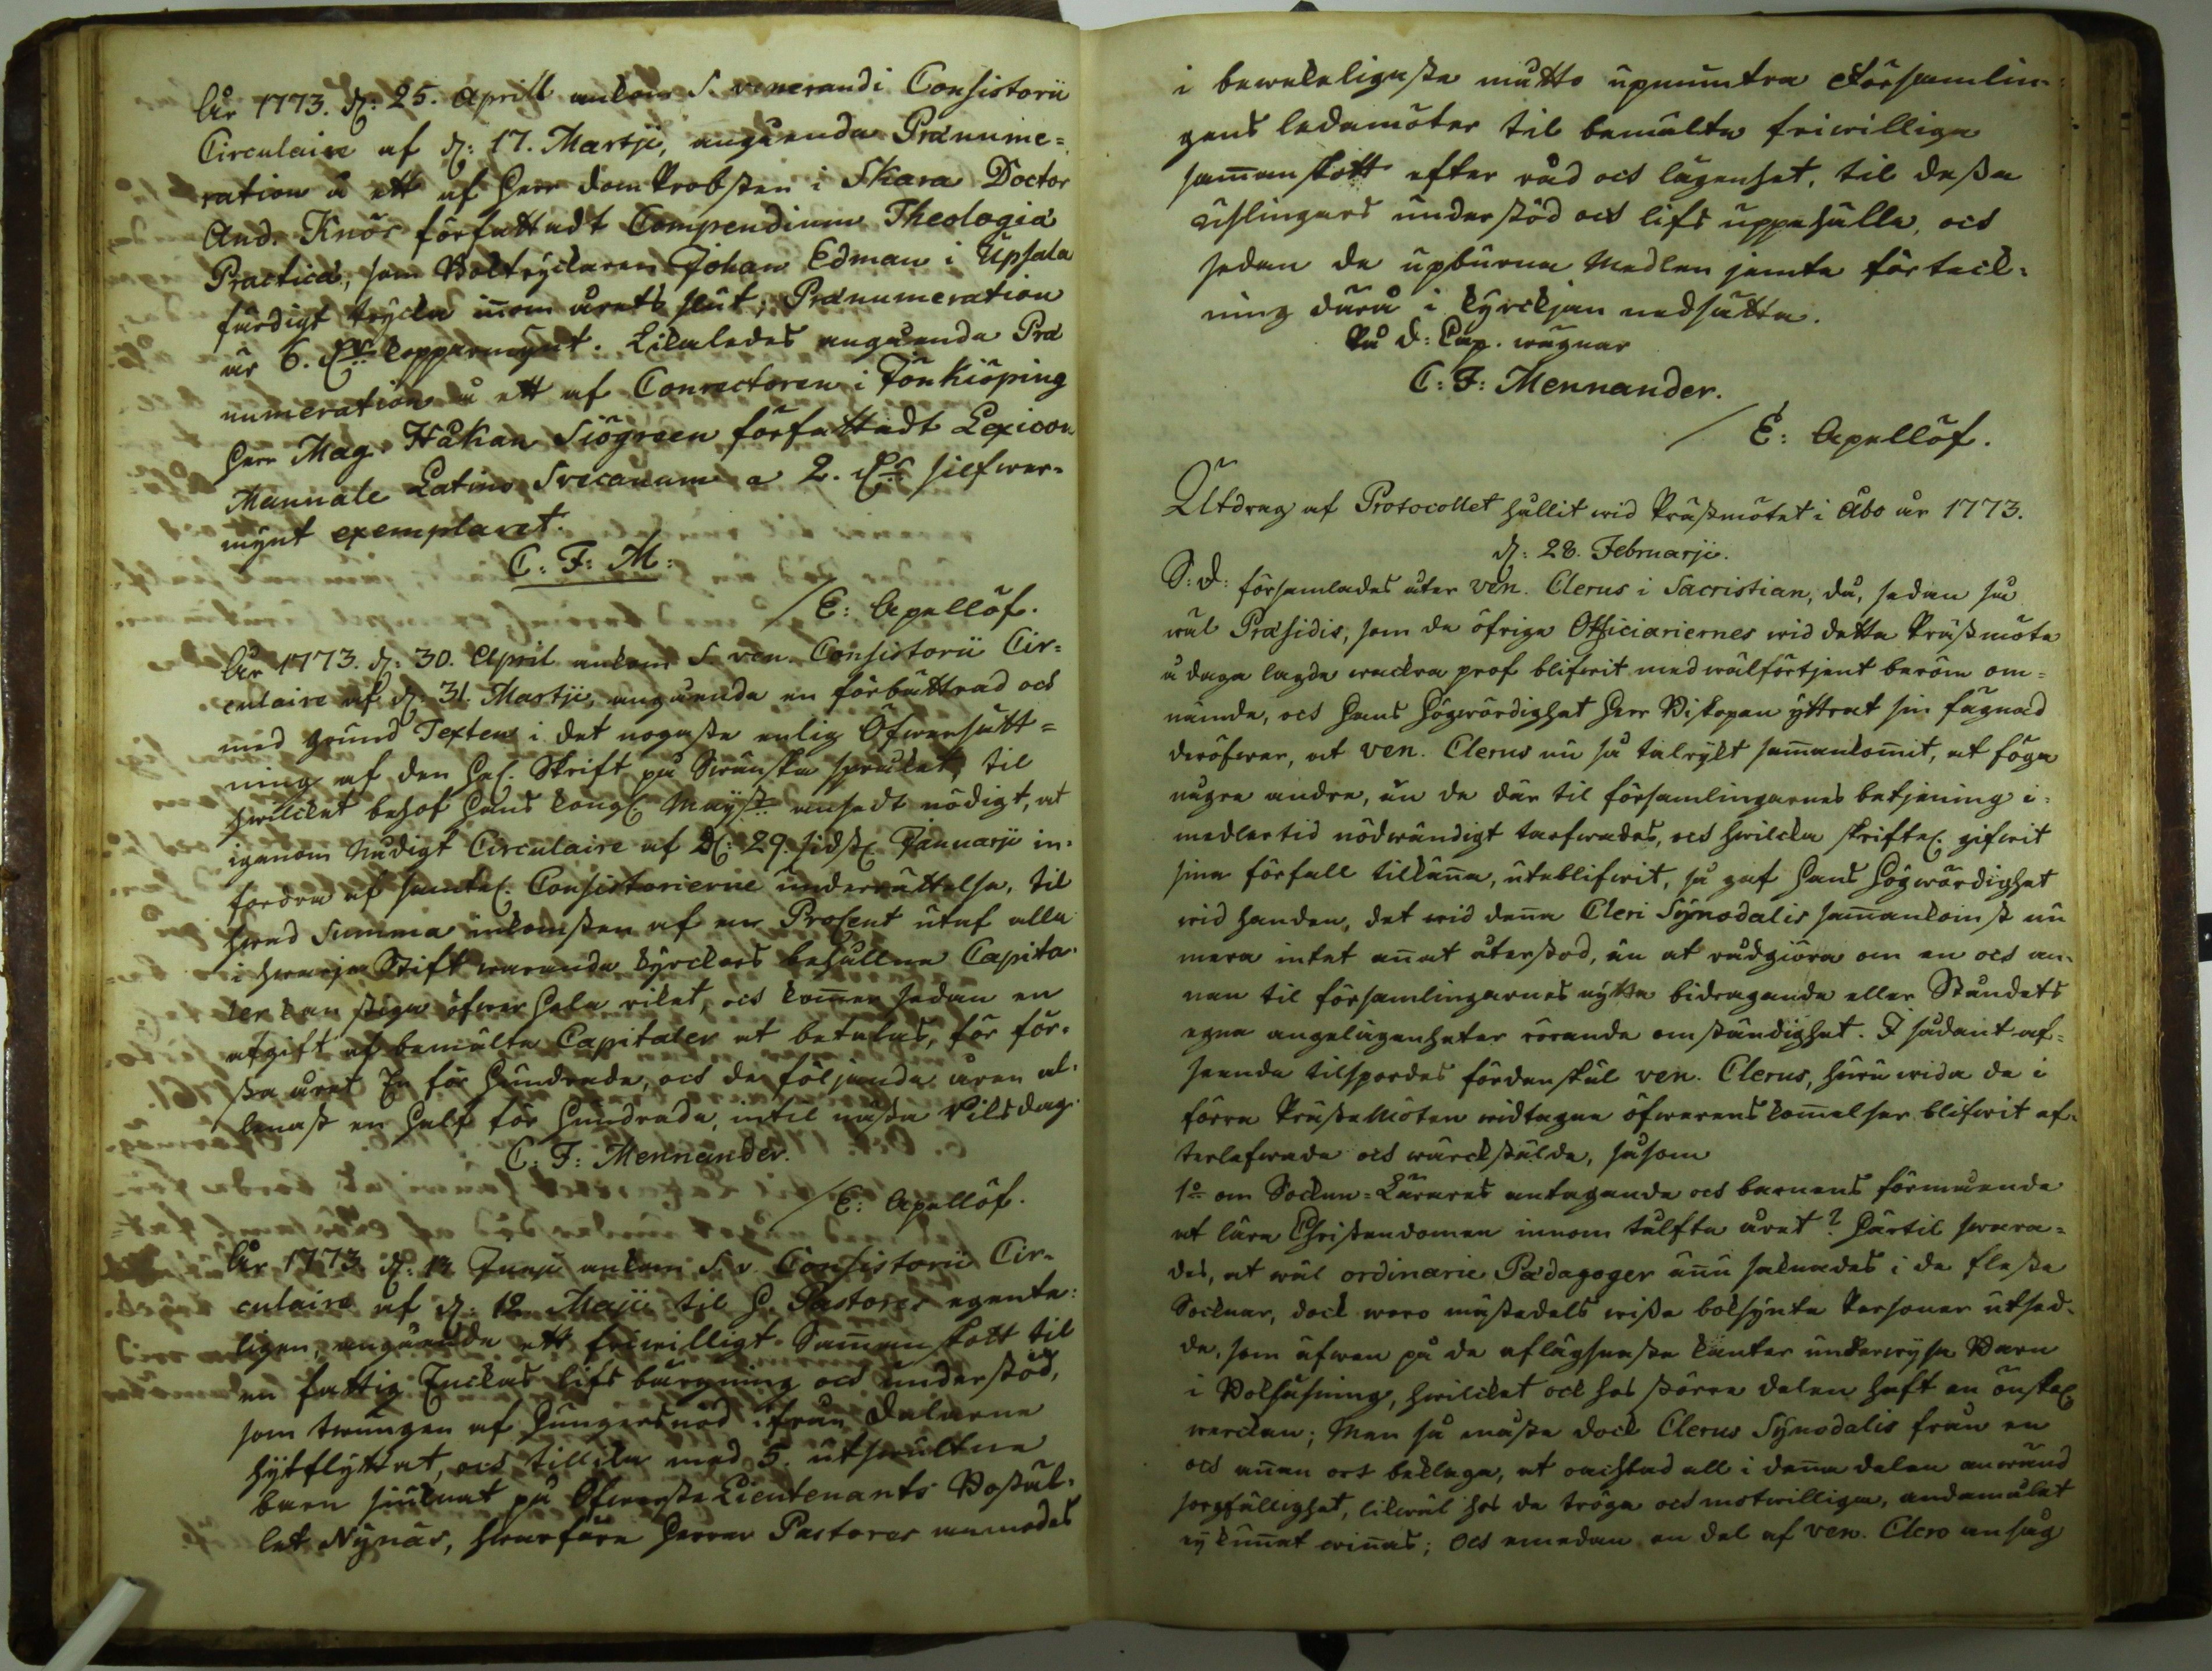 År 1773. d: 25. April ankom S. venerandi Consistorii
Circulaire af d: 17. Martji, angående Prænume=
ration å ett af Herr DomProbsten i Skara Doctor
And. Knös författadt Compendium Theologiæ
Practicæ, som Boktryckaren Johan Edman i Upsala
färdigt trycka inom årets slut; Prænumeration
är 6. Dr kopparmynt. Likaledes angående Præ
numeration å ett af Conrectoren i Jönkiöping
Herr Mag. Håkan Siögreen författadt Lexicon
Manuale Latino Svecanum a 2. Dr silfwer-
mynt exemplaret.
C. F. M:
/ E: Apellöf.
År 1773. d: 30. April ankom S. ven. Consistorii Cir=
culaire af d: 31. Martji, angående en förbättrad och
med grund Texten i det nogaste enlig Öfwersätt=
ning af den Hel. Skrift på Swänska språket, til
hwilcket behof Hans Kongl Maijst ansedt nödigt, at
igenom Nådigt Circulaire af d: 29. sidstl Januarji in-
fordra af samtel. Consistorierne underrättelse, til
hwad Summa inkomsten af en Procent utaf alla
i hwarje Stift warande kyrckors behållne Capita-
ler kan stiga öfwer hela riket, och kommer sedan en
afgift af bemälte Capitaler at betalas, för för-
sta året En för hundrade, och de följande åren al-
lenast en half för hundrade, intil nästa Riksdag.
C. F: Mennander.
/ E: Apellöf.
År 1773 d: 13 Junji ankom S. v. Consistorii Cir-
culaire af d: 12 Maji til H. Pastores egente=
ligen, angående ett friwilligt Sammanskott til
en fattig Enckas lifs bärgning och understöd,
som twungen af hungersnöd ifrån Dalarne
hytflyttat, och tillika med 5. utswultne
barn siuknat på Öfwerste Lieutenants Bostäl-
let Nynäs, hwarföre Herrar Pastores anmodas
i beweveligaste måtto upmuntra Församlin-
gens ledamöter til bemälte friwilliga
sammanskott efter råd och lägenhet, til dessa
uslingars understöd och lifs uppehälle, och
sedan de upburne Medlen jemte förteck=
ning därå i kyrckjan nedsätta.
På d: Cap. wägnar
C: F: Mennander.
/ E: Apellöf.
Utdrag af Protocollet hållit wid Prästmötet i Åbo år 1773.
d: 28. Februarji.
S: D: församlades åter ven. Clerus i Sacristian, då, sedan så
wäl Præsidis, som de öfrige Officiariernes wid detta Prästmöte
å daga lagde wackra prof blifwit med wälförtjent beröm om=
nämde, och Hans Högwördighet Herr Biskopen yttrat sin fägnad
deröfwer, at ven. Clerus nu så talrykt sammankommit, at föga
någre andre, än de där til församlingarnes betjening i-
medlertid nödwändigt tarfwades, och hwilcka skriftel. gifwit
sina förfall tillkänna, uteblifwit, så gaf Hans Högwördighet
wid handen, det wid denna Cleri Synodalis sammankomst nu
mera intet annat återstod, än at rådgiöra om en och an-
nan til församlingarnes nytta bidragande eller Ståndets
egna angelägenheter rörande omständighet. I sådant af=
seende tilspordes fördenskul ven. Clerus, huru wida de i
förra PrästeMöten widtagne öfwerenskommelser blifwit ef-
terlefwade och wärckstälde, såsom
1o om Socken=Lärares antagande och barnens förmående
at lära Christendomen innom tålfte året? Härtil swara=
des, at wäl ordinarie Pædagoger ännu saknades i de fleste
Socknar, dock woro mästedels wisse boksynte Personer utsed-
de, som äfwen på de aflägsnaste kanter underwysa Barn
i Bokläsning, hwilcket ock hos större delen haft en önskel
werckan; Men så måste dock Clerus Synodalis från en
och annan ort beklaga, at oachtad all i denna delen anwänd
sorgfällighet, likwäl hos de tröga och motwilliga, ändamålet
ey kunnat winnas; Och emedan en del af ven. Clero ansåg